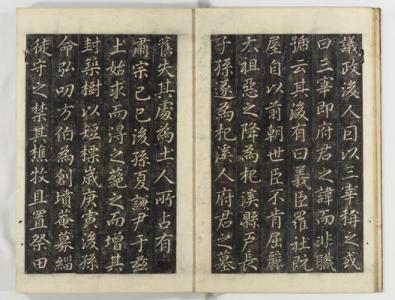 議政後人因以三宰稱之或
曰三宰即府君之諱而非職
號云其後有曰義臣羅社既
屋自以前朝世臣不肯屈麗
太祖惡之降為杞溪縣戶長
子孫遂為杞溪人府君之墓
舊失其處為土人所占有
肅宗己巳後孫夏謙尹于玆
土始求而得之蕝之而增其
封栞樹以短標歲庚寅後孫
命弘叨方伯為創墳菴募緇
徒守之禁其樵牧且置祭田